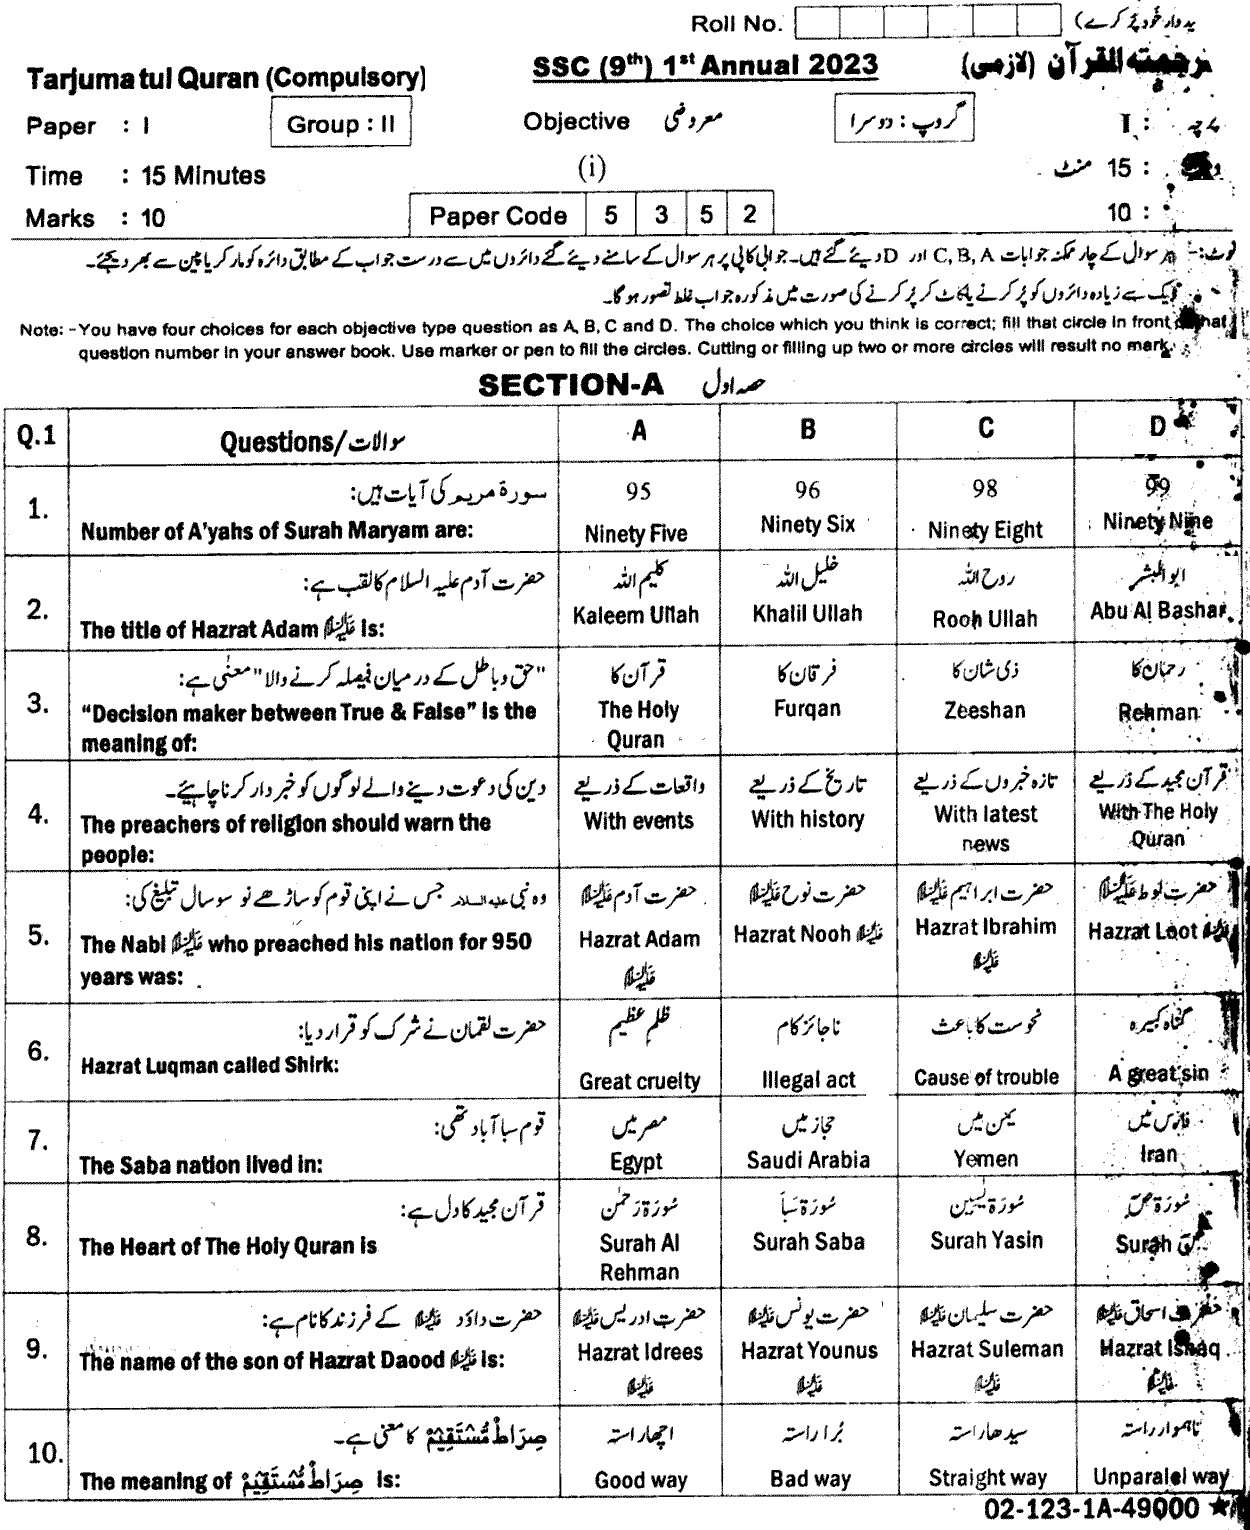 Roll No.
Tarjumatul Quran (Compulsory) SSC (9th) 1st Annual 2023 ترجمتہ القرآن (لازمی)
Paper : I Group : II Objective معروضی گروپ : دوسرا پرچہ : I
Time : 15 Minutes (i) 15 منٹ
Marks : 10 Paper Code 5 3 5 2 10 :
نوٹ:- ہر سوال کے چار ممکنہ جوابات C, B, A اور D دیئے گئے ہیں۔ جوابی کاپی پر ہر سوال کے سامنے دیئے گئے دائروں میں سے درست جواب کے مطابق دائرہ کو مارکر یا پین سے بھر دیجئے۔
ایک سے زیادہ دائروں کو پُر کرنے یا کاٹ کر پُر کرنے کی صورت میں مذکورہ جواب غلط تصور ہوگا۔
Note: - You have four choices for each objective type question as A, B, C and D. The choice which you think is correct; fill that circle in front of that
question number in your answer book. Use marker or pen to fill the circles. Cutting or filling up two or more circles will result no mark.
SECTION-A حصہ اول
Q.1 Questions/سوالات A B C D
سورۃ مریم کی آیات ہیں: 95 96 98 99
1. Number of A'yahs of Surah Maryam are: Ninety Five Ninety Six Ninety Eight Ninety Nine
حضرت آدم علیہ السلام کا لقب ہے: کلیم اللہ خلیل اللہ روح اللہ ابو البشر
2. The title of Hazrat Adam علیہ السلام is: Kaleem Ullah Khalil Ullah Rooh Ullah Abu Al Bashar
"حق و باطل کے درمیان فیصلہ کرنے والا" معنٰی ہے: قرآن کا فرقان کا ذی شان کا رحمان کا
3. "Decision maker between True & False" is the The Holy Furqan Zeeshan Rehman
meaning of: Quran
دین کی دعوت دینے والے لوگوں کو خبردار کرنا چاہیئے۔ واقعات کے ذریعے تاریخ کے ذریعے تازہ خبروں کے ذریعے قرآن مجید کے ذریعے
4. The preachers of religion should warn the With events With history With latest With The Holy
people: news Quran
وہ نبی علیہ السلام جس نے اپنی قوم کو ساڑھے نو سو سال تبلیغ کی: حضرت آدم علیہ السلام حضرت نوح علیہ السلام حضرت ابراہیم علیہ السلام حضرت لوط علیہ السلام
5. The Nabi علیہ السلام who preached his nation for 950 Hazrat Adam Hazrat Nooh علیہ السلام Hazrat Ibrahim Hazrat Loot علیہ السلام
years was: علیہ السلام علیہ السلام
حضرت لقمان نے شرک کو قرار دیا: ظلم عظیم ناجائز کام نحوست کا باعث گناہ کبیرہ
6. Hazrat Luqman called Shirk: Great cruelty Illegal act Cause of trouble A great sin
قوم سبا آباد تھی: مصر میں حجاز میں یمن میں فارس میں
7. The Saba nation lived in: Egypt Saudi Arabia Yemen Iran
قرآن مجید کا دل ہے: سُورَۃ رَحمٰن سُورَۃ سَبَا سُورَۃ یٰسین سُورَۃ صٓ
8. The Heart of The Holy Quran is Surah Al Surah Saba Surah Yasin Surah
Rehman
حضرت داؤد علیہ السلام کے فرزند کا نام ہے: حضرت ادریس علیہ السلام حضرت یونس علیہ السلام حضرت سلیمان علیہ السلام حضرت اسحاق علیہ السلام
9. The name of the son of Hazrat Daood علیہ السلام is: Hazrat Idrees Hazrat Younus Hazrat Suleman Hazrat Ishaq
علیہ السلام علیہ السلام علیہ السلام علیہ السلام
صِرَاطٌ مُّسْتَقِیْمٌ کا معنی ہے۔ اچھا راستہ بُرا راستہ سیدھا راستہ ناہموار راستہ
10. The meaning of صِرَاطٌ مُّسْتَقِیْمٌ is: Good way Bad way Straight way Unparalel way
02-123-1A-49000 ★